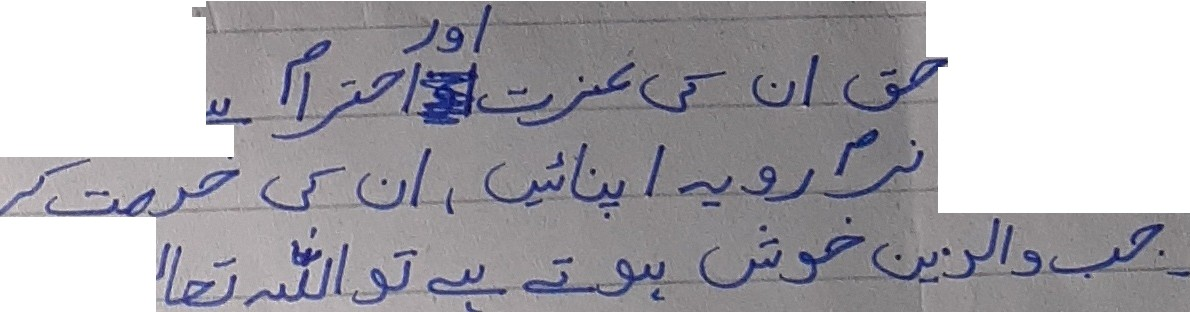 حق ان کی عزت اور احترام ہے
نرم رویہ اپنائیں، ان کی خدمت کر
جب والدین خوش ہوتے ہے تو اللہ تعا